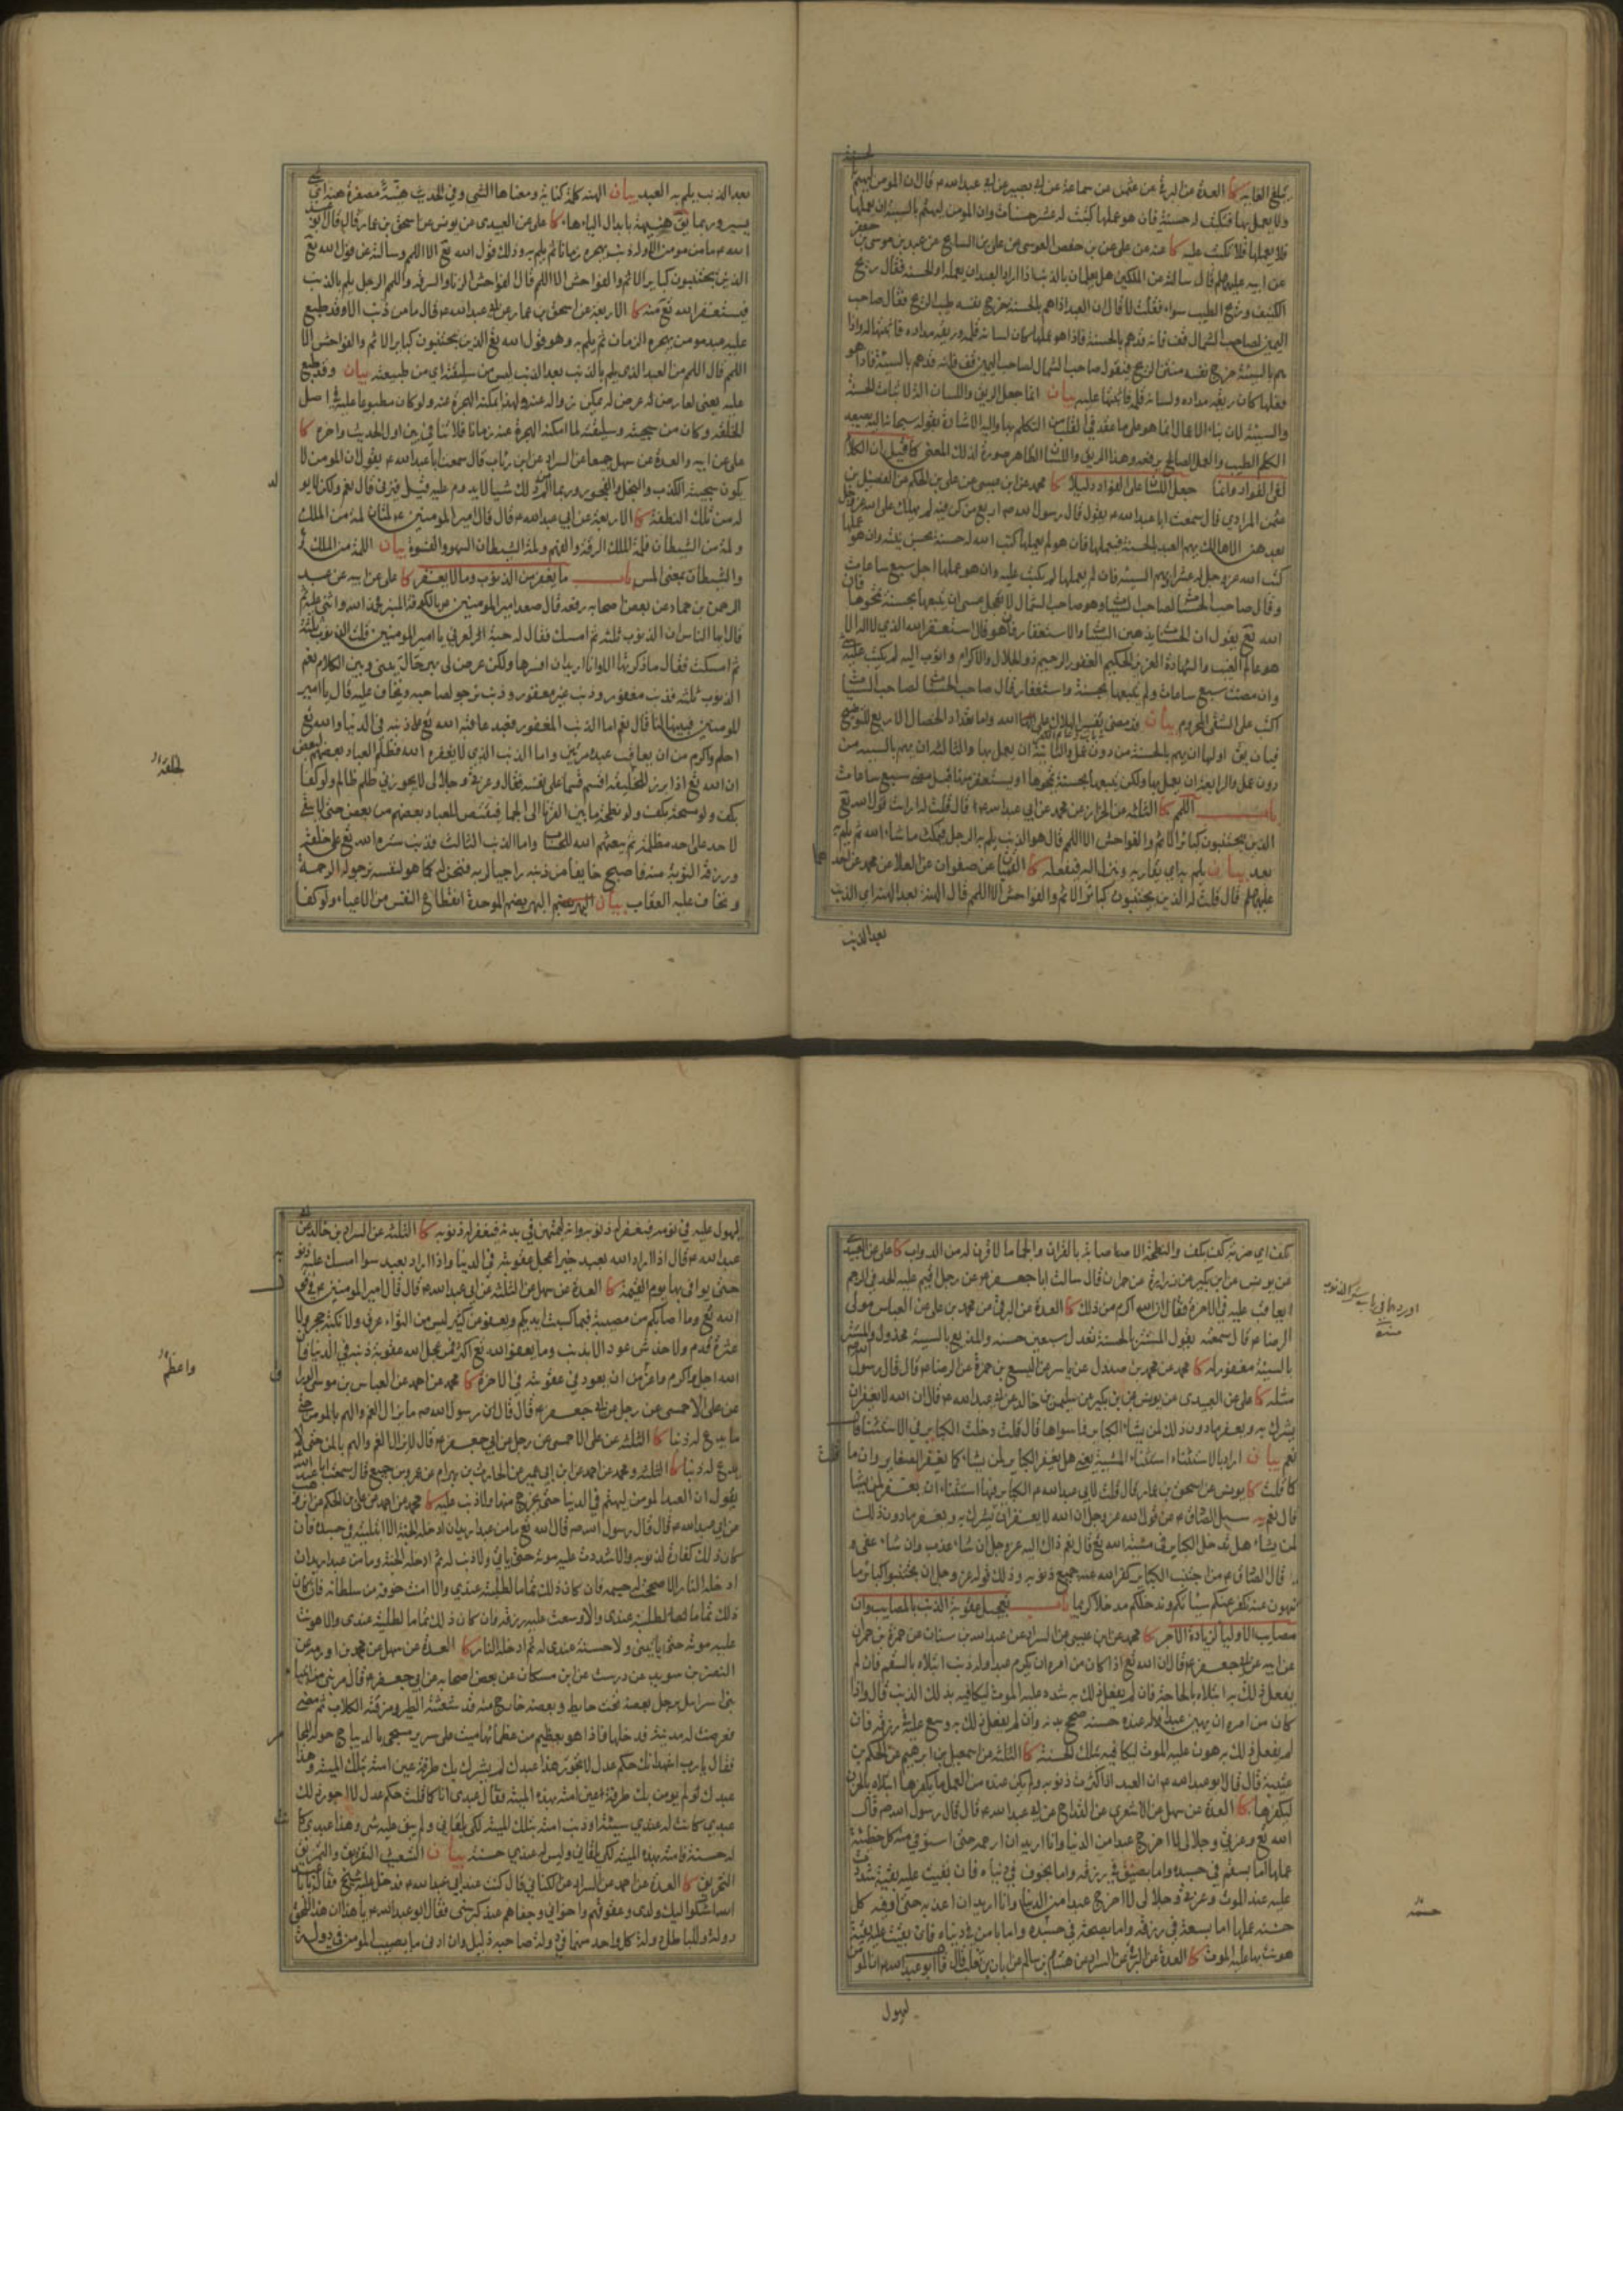 يبلغ الغاية كا العدة عن البرقي عن عثمن عن سماعة عن ابي بصير عن ابي عبدالله ع قال ان المومن ليهم بالحسنة
ولا يعمل بها فتكتب له حسنة فان هو عملها كتبت له عشر حسنات وان المومن ليهم بالسيئة ان يعملها
فلا يعملها فلا تكتب عليه كا عنه عن علي بن حفص العوسي عن علي بن السايح عن عبد الله بن موسى بن جعفر
عن ابيه عليهم قال سالته عن الملكين هل يعلمان بالذنب اذا اراد العبد ان يعمله او الحسنة فقال ريح
الكنيف وريح الطيب سواء فقلت لا قال ان العبد اذا هم بالحسنة خرج نفسه طيب الريح فقال صاحب
اليمين لصاحب الشمال قف فانه قد هم بالحسنة فاذا هو عملها كان لسانه قلمه وريقه مداده فاثبتها له واذا
هم بالسيئة خرج نفسه منتن الريح فيقول صاحب الشمال لصاحب اليمين قف فانه قد هم بالسيئة فاذا هو
فعلها كان ريقه مداده ولسانه قلمه فاثبتها عليه بيان انما جعل الريق واللسان الة لاثبات الحسنة
والسيئة لان بناء الاعمال انما هو على ما عقد في القلب من التكلم بها واليه الاشارة بقوله سبحانه اليه يصعد
الكلم الطيب والعمل الصالح يرفعه وهذا الريق واللسان الظاهر صورة لذلك المعنى كما قيل ان الكلام
لفي الفواد وانما جعل اللسان على الفواد دليلا كا محمد عن ابن عيسى عن علي بن الحكم عن الفضيل بن
عثمن المرادي قال سمعت ابا عبدالله ع يقول قال رسول الله ص اربع من كن فيه لم يهلك على الله عز وجل
بعدهن الا هالك يهم العبد بالحسنة فيعملها فان هو لم يعملها كتب الله له حسنة بحسن نيته وان هو عملها
كتب الله عز وجل له عشرا ويهم بالسيئة فان لم يعملها لم يكتب عليه وان هو عملها اجل سبع ساعات
وقال صاحب الحسنات لصاحب السيئات وهو صاحب الشمال لا تعجل عسى ان يتبعها بحسنة تمحوها فان
الله تع يقول ان الحسنات يذهبن السيئات او الاستغفار فان هو قال استغفر الله الذي لا اله الا
هو عالم الغيب والشهادة العزيز الحكيم الغفور الرحيم ذو الجلال والاكرام واتوب اليه لم يكتب عليه شي
وان مضت سبع ساعات ولم يتبعها بحسنة واستغفار قال صاحب الحسنات لصاحب السيئات
اكتب على الشقي المحروم بيان
فبان يق اولها ان يهم بالحسنة من دون عمل والثانية ان يعمل بها والثالثة ان يهم بالسيئة من
دون عمل والرابعة ان يعمل بها ولكن يتبعها بحسنة تمحوها او يستغفر منها قبل مضي سبع ساعات
باب اللمم كا الثلثه عن الخزاز عن محمد عن ابي عبدالله ع قال قلت له ارايت قول الله تع
الذين يجتنبون كبائر الاثم والفواحش الا اللمم قال هو الذنب يلم به الرجل فيمكث ما شاء الله ثم يلم به
بعد بيان يلم به اي يقاربه وينزل اليه فيفعله كا القميان عن صفوان عن العلا عن محمد عن احدهما
عليهما قال قلت له الذين يجتنبون كبائر الاثم والفواحش الا اللمم قال الهنة بعد الهنة اي الذنب
بعد الذنب
بعد الذنب يلم به العبد بيان الهنه كلمة كناية ومعناها الشي وفي الحديث هنية مصغرة هنة اي شي
يسير وربما يق هنيهة بابدال الياء هاء كا علي عن العبيدي عن يونس عن اسحق بن عمار قال قال ابو عبد
الله ع ما من مومن الا وله ذنب يهجره زمانا ثم يلم به وذلك قول الله تع الا اللمم وسالته عن قول الله تع
الذين يجتنبون كبائر الاثم والفواحش الا اللمم قال الفواحش الزنا والسرقة واللمم الرجل يلم بالذنب
فيستغفر الله تع منه كا الاربعة عن اسحق بن عمار عن ابي عبدالله ع قال ما من ذنب الا وقد طبع
عليه عبد مومن يهجره الزمان ثم يلم به وهو قول الله تع الذين يجتنبون كبائر الاثم والفواحش الا
اللمم قال اللمم العبد الذي يلم بالذنب بعد الذنب ليس من سليقته اي من طبيعته بيان وقد طبع
عليه يعني لعارض له عرض له يمكن زواله عنه ولهذا يمكنه الهجرة عنه ولو كان مطبوعا عليه في اصل
الخلقة وكان من سجيته وسليقته لما امكنه الهجرة عنه زمانا فلا تنافي بين اول الحديث واخره كا
علي عن ابيه والعدة عن سهل جميعا عن السراد عن ابن رئاب قال سمعت ابا عبدالله ع يقول ان المومن لا
يكون سجيته الكذب والبخل والفجور وربما الم من ذلك شيا لا يدوم عليه قيل فيزني قال نعم ولكن لا يولد
له من تلك النطفة كا الاربعة عن ابي عبدالله ع قال قال امير المومنين ع لمتان لمة من الملك
ولمة من الشيطان فلمة الملك الرقة والفهم ولمة الشيطان السهو والقسوة بيان اللمة من الملك
والشيطان بمعنى المس باب ما يغفر من الذنوب وما لا يغفر كا علي عن ابيه عن عبد
الرحمن بن حماد عن بعض اصحابه رفعه قال صعد امير المومنين ع بالكوفة المنبر فحمد الله واثنى عليه ثم
قال ايها الناس ان الذنوب ثلثة ثم امسك فقال له حبة العرني يا امير المومنين قلت الذنوب ثلثة
ثم امسكت فقال ما ذكرتها الا وانا اريد ان افسرها ولكن عرض لي بهر حال بيني وبين الكلام نعم
الذنوب ثلثة فذنب مغفور وذنب غير مغفور وذنب نرجو لصاحبه ونخاف عليه قال يا امير
المومنين فبينها لنا قال نعم اما الذنب المغفور فعبد عاقبه الله تع على ذنبه في الدنيا والله تع
احلم واكرم من ان يعاقب عبده مرتين واما الذنب الذي لا يغفره الله فظلم العباد بعضهم لبعض
ان الله تع اذا برز للخليقة اقسم قسما على نفسه فقال وعزتي وجلالي لا يجوزني ظلم ظالم ولو كفا
بكف ولو مسحة بكف ولو نطحة ما بين القرنا الى الجما فيقتص للعباد بعضهم من بعض حتى لا يبقى
لاحد على احد مظلمة ثم يبعثهم الله للحساب واما الذنب الثالث فذنب ستره الله تع على خلقه
ورزقه التوبة منه فاصبح خائفا من ذنبه راجيا لربه فنحن له كما هو لنفسه نرجو له الرحمة
ونخاف عليه العقاب بيان البهر بضم الموحدة انقطاع النفس من الاعياء ولو كفا
كف اي ضربة كف بكف
عن يونس عن ابن بكير عن زرارة عن حمران قال سالت ابا جعفر ع عن رجل اقيم عليه الحد في الرجم
ايعاقب عليه في الاخرة فقال ان الله اكرم من ذلك كا العدة عن البرقي عن محمد بن علي عن العباس مولى
الرضا ع قال سمعته يقول المستتر بالحسنة تعدل سبعين حسنة والمذيع بالسيئة مخذول والمستتر
بالسيئة مغفور له كا محمد عن محمد بن صندل عن ياسر عن اليسع بن حمزة عن الرضا ع قال قال رسول الله ص
مثله كا علي عن العبيدي عن يونس عن ابن بكير عن سليمن بن خالد عن ابي عبدالله ع قال ان الله لا يغفر ان
يشرك به ويغفر ما دون ذلك لمن يشاء الكبائر فما سواها قال قلت دخلت الكبائر في الاستثناء قال
نعم بيان اراد بالاستثناء استثناء المشية يعني هل يغفر الكبائر لمن يشاء كما يغفر الصغائر وان ما
كا قلت كا يونس عن اسحق بن عمار قال قلت لابي عبدالله ع الكبائر فيها استثناء ان يغفر لمن يشاء
قال نعم يه سئل الصادق ع عن قول الله عز وجل ان الله لا يغفر ان يشرك به ويغفر ما دون ذلك
لمن يشاء هل تدخل الكبائر في مشية الله تع قال نعم ذاك اليه عز وجل ان شاء عذب وان شاء عفى
قال الصادق ع من اجتنب الكبائر كفر الله عنه جميع ذنوبه وذلك قوله عز وجل ان تجتنبوا كبائر ما
تنهون عنه نكفر عنكم سيئاتكم وندخلكم مدخلا كريما باب تعجيل عقوبة الذنب بالمصايب وان
مصايب الاوليا لزيادة الاجر كا محمد عن ابن عيسى عن السراد عن عبدالله بن سنان عن حمزة بن حمران
عن ابيه عن ابي جعفر ع قال ان الله تع اذا كان من امره ان يكرم عبدا وله ذنب ابتلاه بالسقم فان لم
يفعل ذلك به ابتلاه بالحاجة فان لم يفعل ذلك به شدد عليه الموت ليكافيه بذلك الذنب قال واذا
كان من امره ان يهين عبدا وله عنده حسنة صحح بدنه وان لم يفعل ذلك به وسع عليه في رزقه فان
لم يفعل ذلك به هون عليه الموت ليكافيه بتلك الحسنة كا الثلثة عن اسمعيل بن ابرهيم عن الحكم بن
عتيبة قال قال ابو عبدالله ع ان العبد اذا كثرت ذنوبه ولم يكن عنده من العمل ما يكفرها ابتلاه بالحزن
ليكفرها كا العدة عن سهل عن الاشعري عن القداح عن ابي عبدالله ع قال قال رسول الله ص قال
الله تع وعزتي وجلالي لا اخرج عبدا من الدنيا وانا اريد ان ارحمه حتى استوفي منه كل خطيئة
عملها اما بسقم في جسده واما بضيق في رزقه واما بخوف في دنياه فان بقيت عليه بقية شددت
عليه عند الموت وعزتي وجلالي لا اخرج عبدا من الدنيا وانا اريد ان اعذبه حتى اوفيه كل
حسنة عملها اما بسعة في رزقه واما بصحة في جسده واما بامن في دنياه فان بقيت عليه بقية
هونت بها عليه الموت كا العدة عن البرقي عن السراد عن هشام بن سالم عن ابان بن تغلب قال قال ابو عبدالله ع ان المومن
ليهول
ليهول عليه في نومه فيغفر له ذنوبه وانه ليمتهن في بدنه فيغفر له ذنوبه كا الثلثه عن السراد
عبدالله ع قال اذا اراد الله بعبد خيرا عجل عقوبته في الدنيا واذا اراد بعبد سوا امسك عليه ذنوبه
حتى يوافي بها يوم القيمة كا العدة عن سهل عن الثلثة عن ابي عبدالله ع قال قال امير المومنين ع في قول
الله تع وما اصابكم من مصيبة فبما كسبت ايديكم ويعفو عن كثير ليس من التواء عرق ولا نكبة حجر ولا
عثرة قدم ولا خدش عود الا بذنب وما يعفو الله تع اكثر فمن عجل الله عقوبة ذنبه في الدنيا فان
الله اجل واكرم من ان يعود في عقوبته في الاخرة كا محمد عن احمد عن العباس بن موسى الوراق
عن علي الاحمسي عن رجل عن ابي جعفر ع قال قال رسول الله ص ما يزال الغم والهم بالمومن حتى
ما يدع له ذنبا كا الثلثة عن علي الاحمسي عن رجل عن ابي جعفر ع قال لا يزال الغم والهم بالمومن حتى لا
يدع له ذنبا كا الثلثة ومحمد عن احمد عن ابن ابي عمير عن الحارث بن بهرام عن عمرو بن جميع قال سمعت ابا عبد الله ع
يقول ان العبد المومن ليهتم في الدنيا حتى يخرج منها ولا ذنب عليه كا محمد عن احمد عن علي بن الحكم
عن ابي عبدالله ع قال قال رسول الله ص قال الله تع ما من عبد اريد ان ادخله الجنة الا ابتليته في جسده فان
كان ذلك كفارة لذنوبه والا شددت عليه موته حتى ياتي ولا ذنب له ثم ادخله الجنة وما من عبد اريد ان
ادخله النار الا صححت له جسمه فان كان ذلك تماما لطلبته عندي والا امنت خوفه من سلطانه فان كان
ذلك تماما لطلبته عندي والا وسعت عليه رزقه فان كان ذلك تماما لطلبته عندي والا هونت
عليه موته حتى ياتيني ولا حسنة عندي له ثم ادخله النار كا العدة عن سهل عن محمد بن اورمه عن
النضر بن سويد عن درست عن ابن مسكان عن بعض اصحابه عن ابي جعفر ع قال مر نبي من انبيا
بني اسرائيل برجل بعضه تحت حايط وبعضه خارج منه قد شعثته الطير ومزقته الكلاب ثم مضى
فعرضت له مدينة فدخلها فاذا هو بعظيم من عظمائها ميت على سرير مسجى بالديباج حوله المجامر
فقال يا رب اشهد انك حكم عدل لا تجور هذا عبدك لم يشرك بك طرفة عين امته بتلك الميتة وهذا
عبدك لم يومن بك طرفة عين امته بهذه الميتة فقال عبدي انا كما قلت حكم عدل لا اجور ذلك
عبدي كانت له عندي سيئة او ذنب امته بتلك الميتة لكي يلقاني ولم يبق عليه شي وهذا عبدي كانت
له حسنة فامته بهذه الميتة لكي يلقاني وليس له عندي حسنة بيان التشعيث التفريق والتمزيق
التخريق كا العدة عن احمد عن السراد عن الكناني قال كنت عند ابي عبدالله ع فدخل عليه شيخ فقال يا ابا عبد
الله اشكوا اليك ولدي وعقوقهم واخواني وجفاهم عند كبر سني فقال ابو عبدالله ع يا هذا ان للحق
دولة وللباطل دولة وكل واحد منهما في دولة صاحبه ذليل وان ادنى ما يصيب المومن في دولة